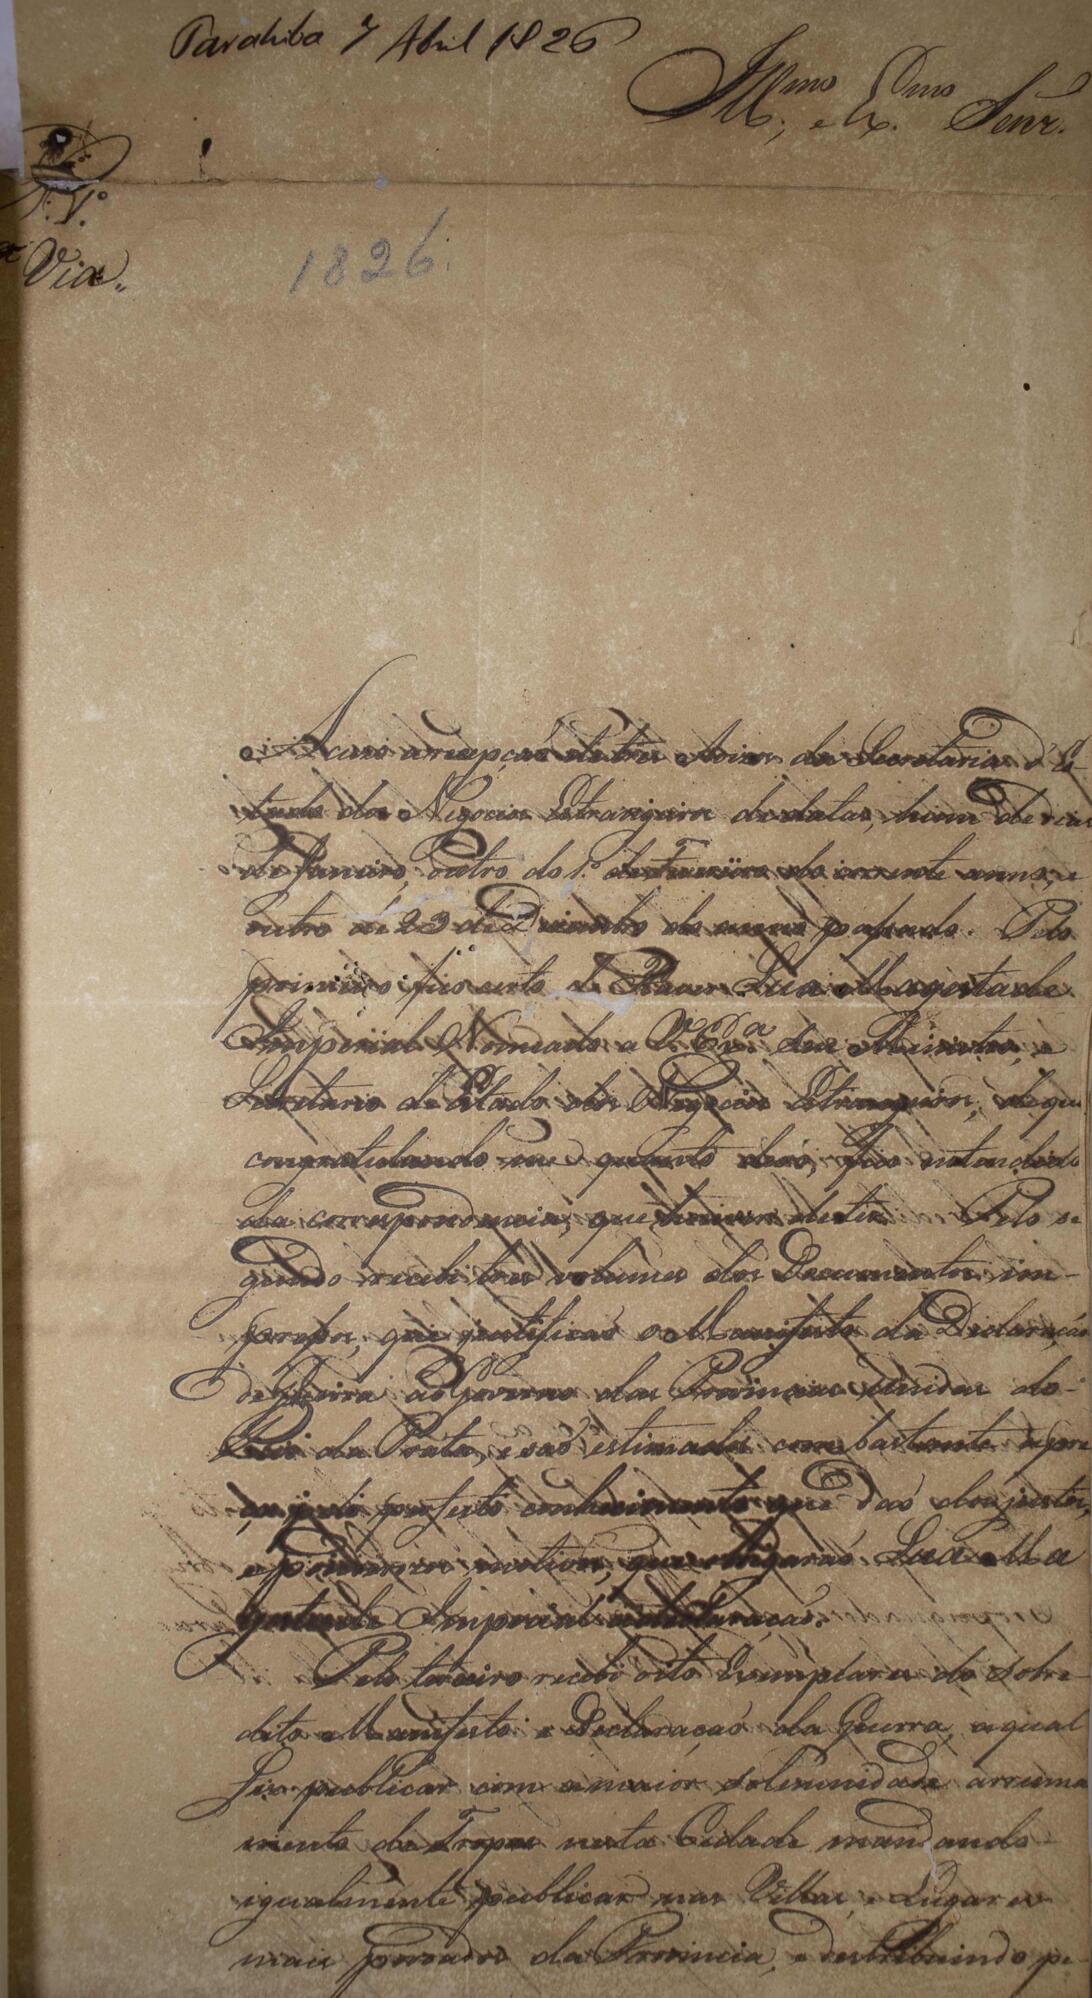 Parahiba 7 Abril 1826
Ill.mo e Ex.mo Senr.
N. 1.º
Via.
1826.
Accuso a recepção de tres Avisos da Secretaria d'Es-
tado dos Negocios Estrangeiros de datas, hum de
de Janeiro, outro do 1.º de Fevereiro do corrente anno, e
outro de 23 de Dezembro do anno passado. Pelo
primeiro fico certo de Haver Sua Magestade
Imperial Nomeado a V. Ex.ª Seu Ministro, e
Secretario de Estado dos Negocios Estrangeiros, de que
congratulando me quanto devo, fico entendido
da correspondencia, que
Pelo se
gundo recebi tres volumes dos Documentos im-
pressos, que justificaõ o Manifesto da Declaração
de Guerra ao Governo das Provincias Unidas do
Rio da Prata, e saõ estimados com bastante apre
ço pelo perfeito conhecimento que daõ dos justos,
e poderosos motivos, que obrigaraõ Sua Ma
gestade Imperial a declaraçaõ.
Pelo terceiro recebi oito Exemplares do sobre
dito Manifesto e Declaraçaõ da Guerra, a qual
fiz publicar com a maior solemnidade
mento de Tropas nesta Cidade mandando
igualmente publicar nas Villas, e Lugares
mais povoados da Provincia, e destribuindo pe-